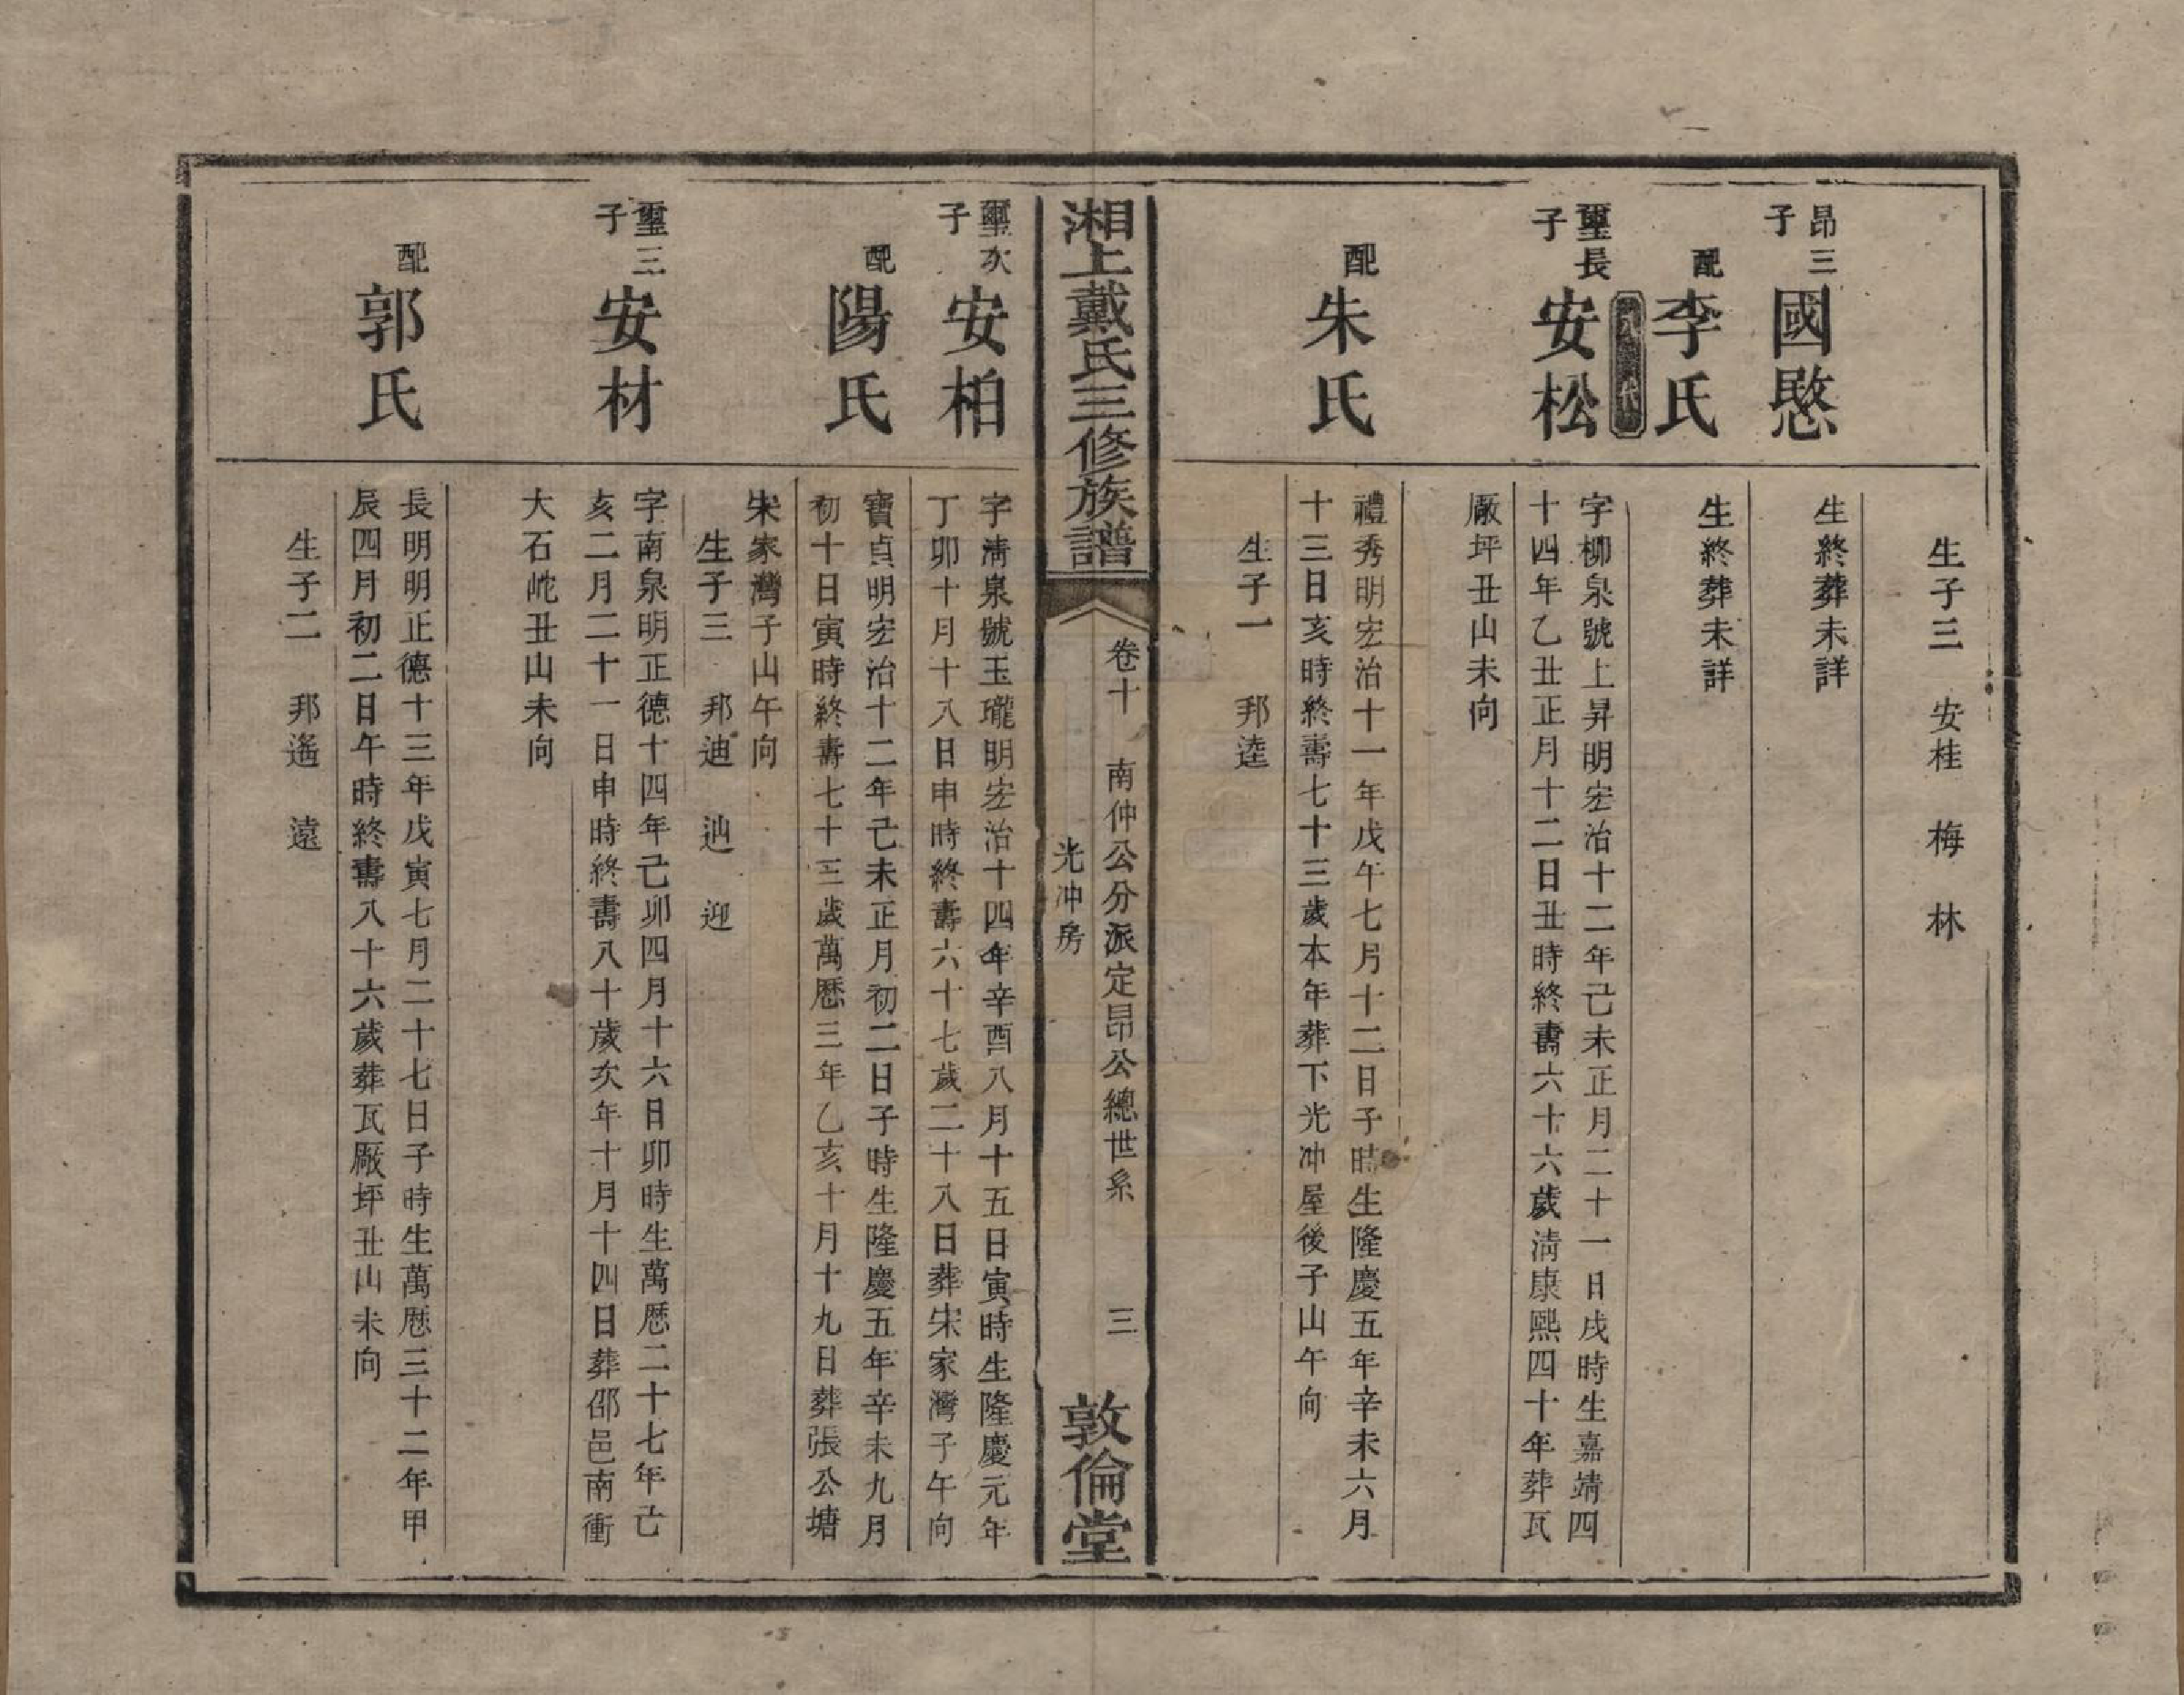 生子三　安桂　梅　林
昂三子　國愍
生終葬未詳
配　李氏
生終葬未詳
璽長子　安松
字柳泉號上昇明宏治十二年己未正月二十一日戌時生嘉靖四
十四年乙丑正月十二日丑時終壽六十六歲淸康熙四十年葬瓦
廠坪丑山未向
配　朱氏
禮秀明宏治十一年戊午七月十二日子時生隆慶五年辛未六月
十三日亥時終壽七十三歲本年葬下光冲屋後子山午向
生子一　邦逵
湘上戴氏三修族譜
卷十　南仲公分派定昂公總世系　三
光冲房
敦倫堂
璽次子　安柏
字淸泉號玉瓏明宏治十四年辛酉八月十五日寅時生隆慶元年
丁卯十月十八日申時終壽六十七歲二十八日葬宋家灣子午向
配　陽氏
寶貞明宏治十二年己未正月初二日子時生隆慶五年辛未九月
初十日寅時終壽七十三歲萬歷三年乙亥十月十九日葬張公塘
宋家灣子山午向
生子三　邦迪　迆　迎
璽三子　安材
字南泉明正德十四年己卯四月十六日卯時生萬歷二十七年己
亥二月二十一日申時終壽八十歲次年十月十四日葬邵邑南衝
大石岮丑山未向
配　郭氏
長明明正德十三年戊寅七月二十七日子時生萬歷三十二年甲
辰四月初二日午時終壽八十六歲葬瓦廠坪丑山未向
生子二　邦遙　遠